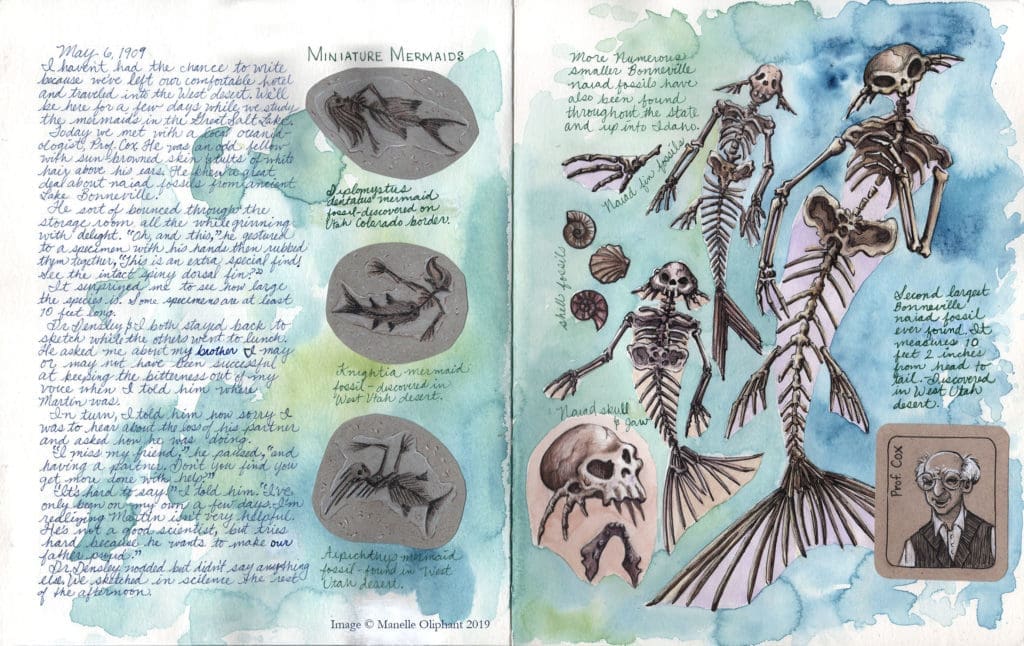 May 6, 1909
I haven't had the chance to write
because we've left our comfortable hotel
and traveled into the West desert. We'll
be here for a few days while we study
the mermaids in the Great Salt Lake.
Today we met with a local oceanol-
ologist, Prof. Cox. He was an odd fellow
with sun browned skin & tufts of white
hair above his ears. He knew a great
deal about naiad fossils from ancient
Lake Bonneville.
He sort of bounced through the
storage room all the while grinning
with delight. "Oh, and this," he gestured
to a specimen with his hands then rubbed
them together, "this is an extra special find!
See the intact spiny dorsal fin?"
It surprised me to see how large
the species is. Some specimens are at least
10 feet long.
Dr Densley & I both stayed back to
sketch while the others went to lunch.
He asked me about my brother & I may
or may not have been successful
at keeping the bitterness out of my
voice when I told him where
Martin was.
In turn, I told him how sorry I
was to hear about the loss of his partner
and asked how he was doing.
"I miss my friend," he paused, "and
having a partner. Don't you find you
get more done with help?"
"It's hard to say," I told him. "I've
only been on my own a few days. I'm
realizing Martin isn't very helpful.
He's not a good scientist, but tries
hard because he wants to make our
father proud."
Dr Densley nodded but didn't say anything
else. We sketched in scilence the rest
of the afternoon.
Miniature Mermaids
Diplomystus
dentatus mermaid
fossil-discovered on
Utah Colorado border.
Knightia mermaid
fossil - discovered in
West Utah desert.
Aipichthys mermaid
fossil - found in West
Utah desert.
Image © Manelle Oliphant 2019
More Numerous
smaller Bonneville
naiad fossils have
also been found
throughout the state
and up into Idaho.
Naiad fin fossils
shell fossils
Naiad skull
& jaw
Second largest
Bonneville
naiad fossil
ever found. It
measures 10
feet 2 inches
from head to
tail. Discovered
in West Utah
desert.
Prof. Cox